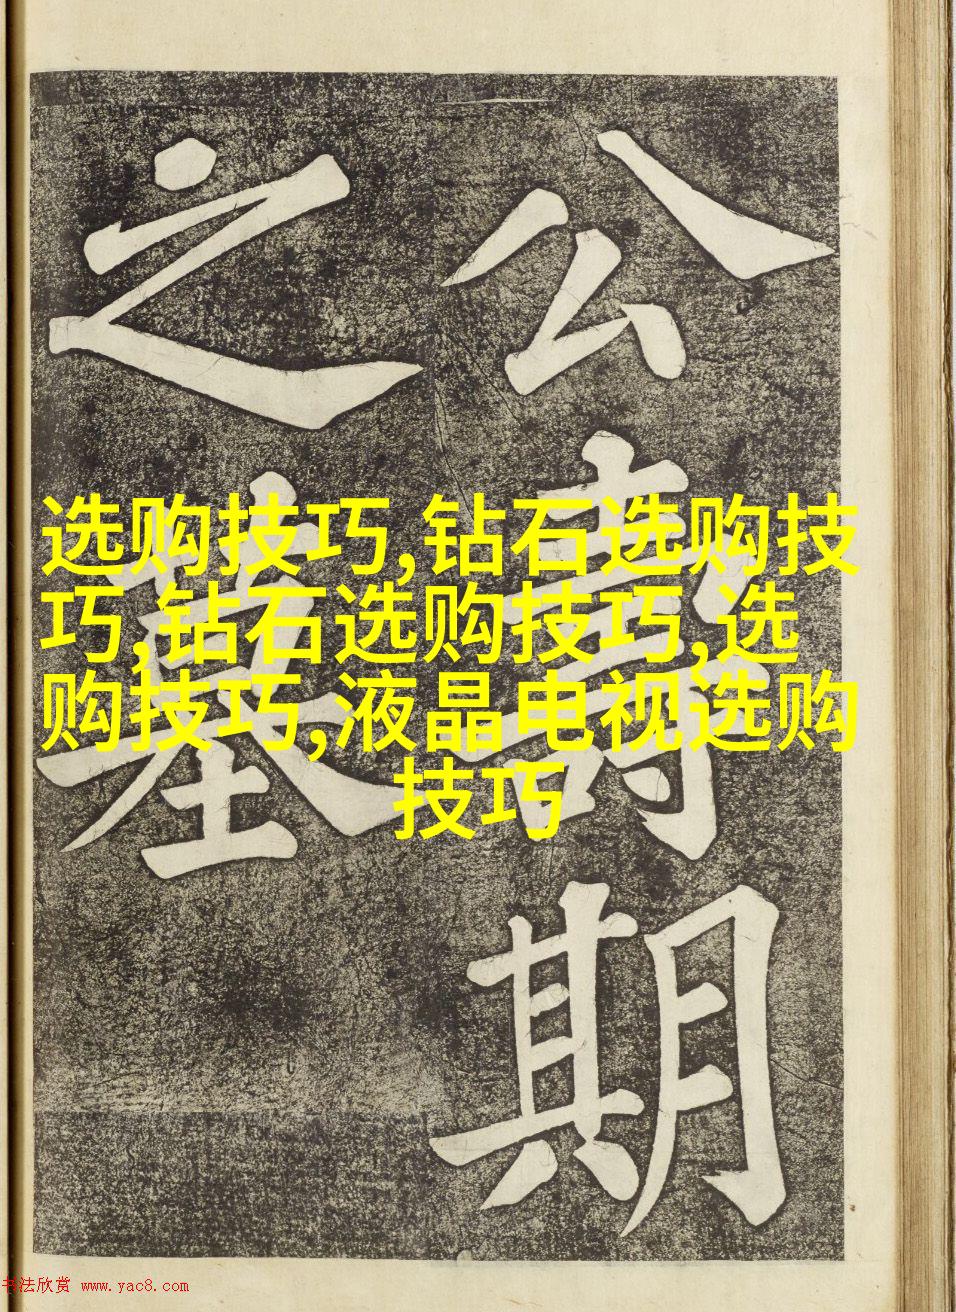 公壽期
之墓
选购技巧,钻石选购技
巧,钻石选购技巧,选
购技巧,液晶电视选购
技巧
书法欣赏 www.yac8.com